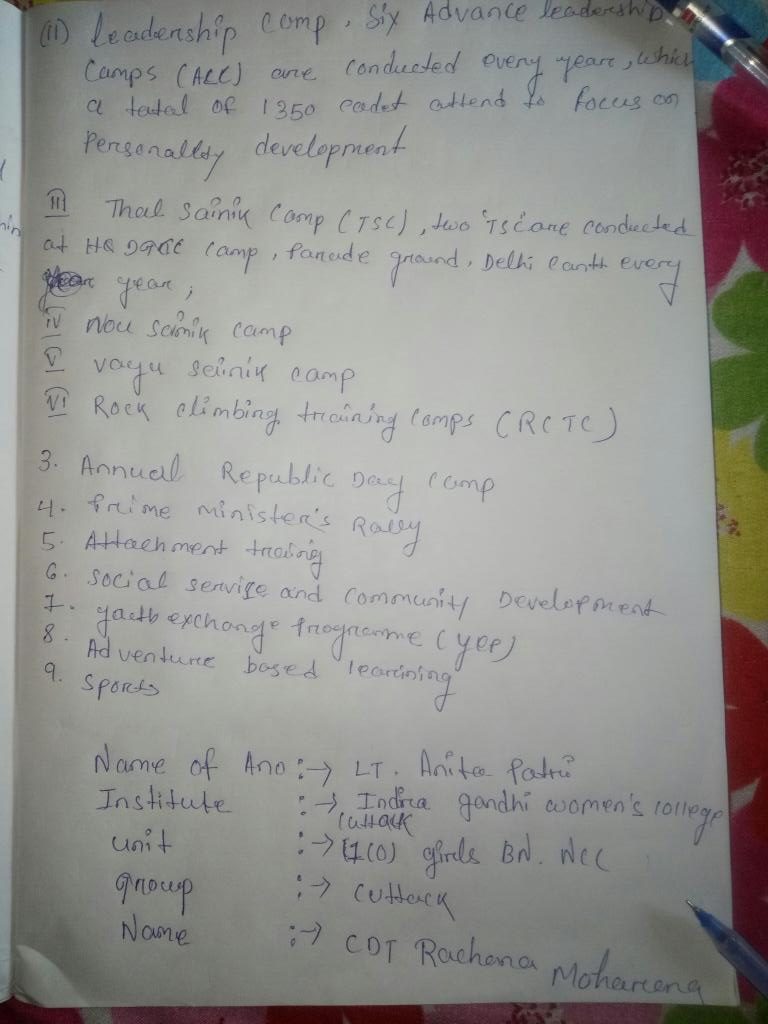 (ii) leadership Camp, Six Advance leadership
Camps (ALC) are conducted every year, which
a total of 1350 cadet attend to focus on
Personallty development
III Thal Sainik Camp (TSC), two TSC are conducted
at HQ DGNCC Camp, Parade ground, Delhi Cantt every
year;
IV Nou Sainik Camp
V Vayu Sainik Camp
VI Rock climbing training Camps (RCTC)
3. Annual Republic Day Camp
4. Prime Minister's Rally
5. Attachment traing
6. Social service and Community Development
7. Youth exchange Programme (YEP)
8. Adventure based learining
9. Sports
Name of Ano :→ LT. Anita Patri
Institute :→ Indira gandhi women's college
Cuttack
unit :→ (1(O) girls BN. NCC
group :→ Cuttack
Name :→ CDT Rachana Moharana